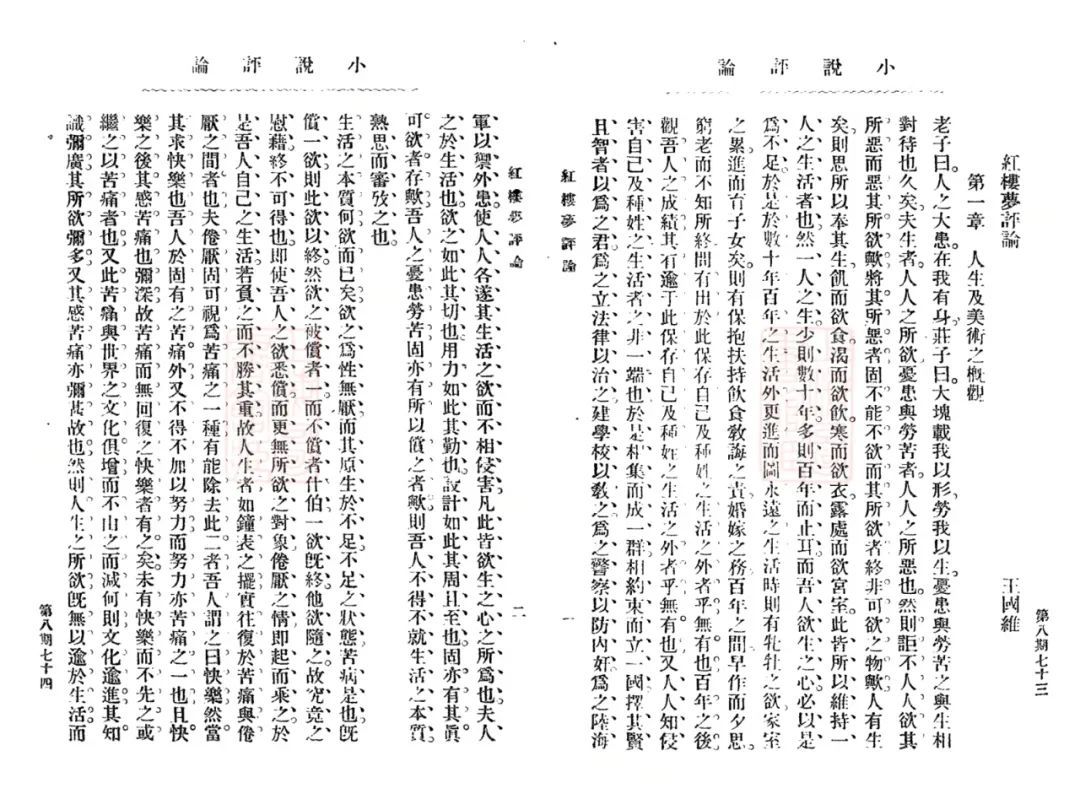 小說評論
第八期七十三
紅樓夢評論　王國維
第一章　人生及美術之概觀
老子曰。人之大患。在我有身。莊子曰。大塊載我以形。勞我以生。憂患與勞苦之與生相
對待也久矣。夫生者。人人之所欲。憂患與勞苦者。人人之所惡也。然則詎不人人欲其
所惡。而惡其所欲歟。將其所惡者。固不能不欲。而其所欲者。終非可欲之物歟。人有生
矣。則思所以奉其生。飢而欲食。渴而欲飲。寒而欲衣。露處而欲宮室。此皆所以維持一
人之生活者也。然一人之生。少則數十年。多則百年而止耳。而吾人欲生之心。必以是
爲不足。於是於數十年百年之生活外。更進而圖永遠之生活。時則有牝牡之欲。家室
之累。進而育子女矣。則有保抱扶持飲食敎誨之責。婚嫁之務。百年之間。早作而夕思。
窮老而不知所終。問有出於此保存自己及種姓之生活之外者乎。無有也。百年之後。
觀吾人之成績。其有逾于此保存自己及種姓之生活之外者乎。無有也。又人人知侵
害自己及種姓之生活者之非一端也。於是相集而成一群。相約束而立一國。擇其賢
且智者以爲之君。爲之立法律以治之。建學校以敎之。爲之警察以防內奸。爲之陸海
紅樓夢評論　一
小說評論
紅樓夢評論　二
軍以禦外患。使人人各遂其生活之欲而不相侵害。凡此皆欲生之心之所爲也。夫人
之於生活也。欲之如此其切也。用力如此其勤也。設計如此其周且至也。固亦有其眞
可欲者存歟。吾人之憂患勞苦。固亦有所以償之者歟。則吾人不得不就生活之本質。
熟思而審攷之也。
生活之本質何。欲而已矣。欲之爲性無厭。而其原生於不足。不足之狀態。苦痛是也。旣
償一欲。則此欲以終。然欲之被償者一。而不償者什伯。一欲旣終。他欲隨之。故究竟之
慰藉。終不可得也。卽使吾人之欲悉償。而更無所欲之對象。倦厭之情卽起而乘之。於
是吾人自己之生活。若負之而不勝其重。故人生者。如鐘表之擺。實往復於苦痛與倦
厭之間者也。夫倦厭固可視爲苦痛之一種。有能除去此二者。吾人謂之曰快樂。然當
其求快樂也。吾人於固有之苦痛外。又不得不加以努力。而努力亦苦痛之一也。且快
樂之後。其感苦痛也彌深。故苦痛而無回復之快樂者有之矣。未有快樂而不先之或
繼之以苦痛者也。又此苦痛與世界之文化俱增。而不由之而減。何則。文化逾進。其知
識彌廣。其所欲彌多。又其感苦痛亦彌甚故也。然則人生之所欲。旣無以逾於生活。而
第八期七十四